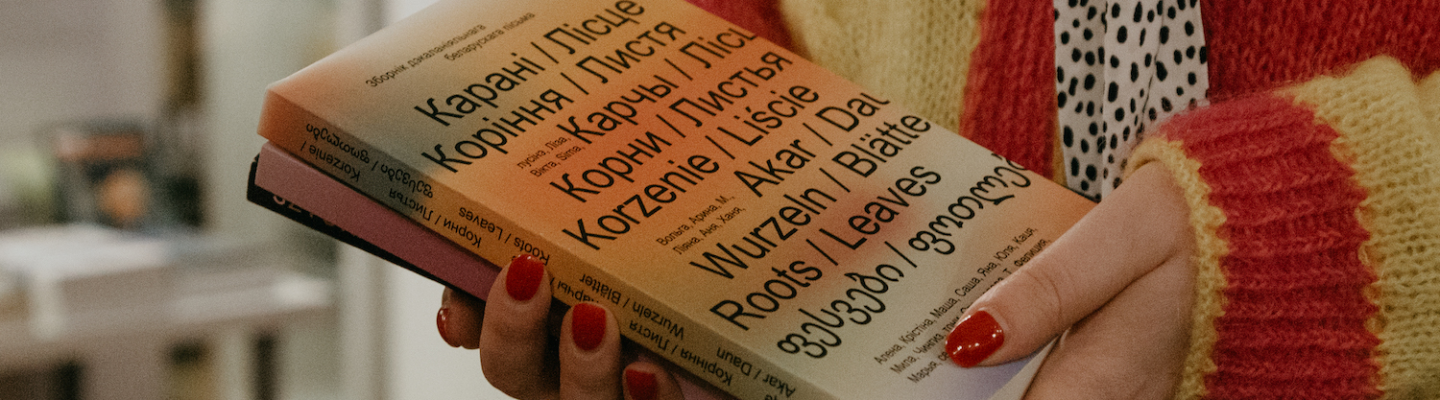 Зборнік дэкаланіяльнага
беларускага пісьма
Карані / Лісце
Коріння / Листя
Карчы / Лісц
Корни / Листья
Korzenie / Liście
Akar / Dau
Wurzeln / Blätte
Roots / Leaves
ფესვები / ფოთლები
Вольга, Арина, М.,
Ліяна, Аня, Ханя,
Алена, Крістіна, Маша, Саша, Яна, Юля, Каця,
Міла,
Марыя,
Korzenie /
Корни / Листья /
Roots / Leaves
Wurzeln / Blätter
Коріння / Листя
Akar / Daun